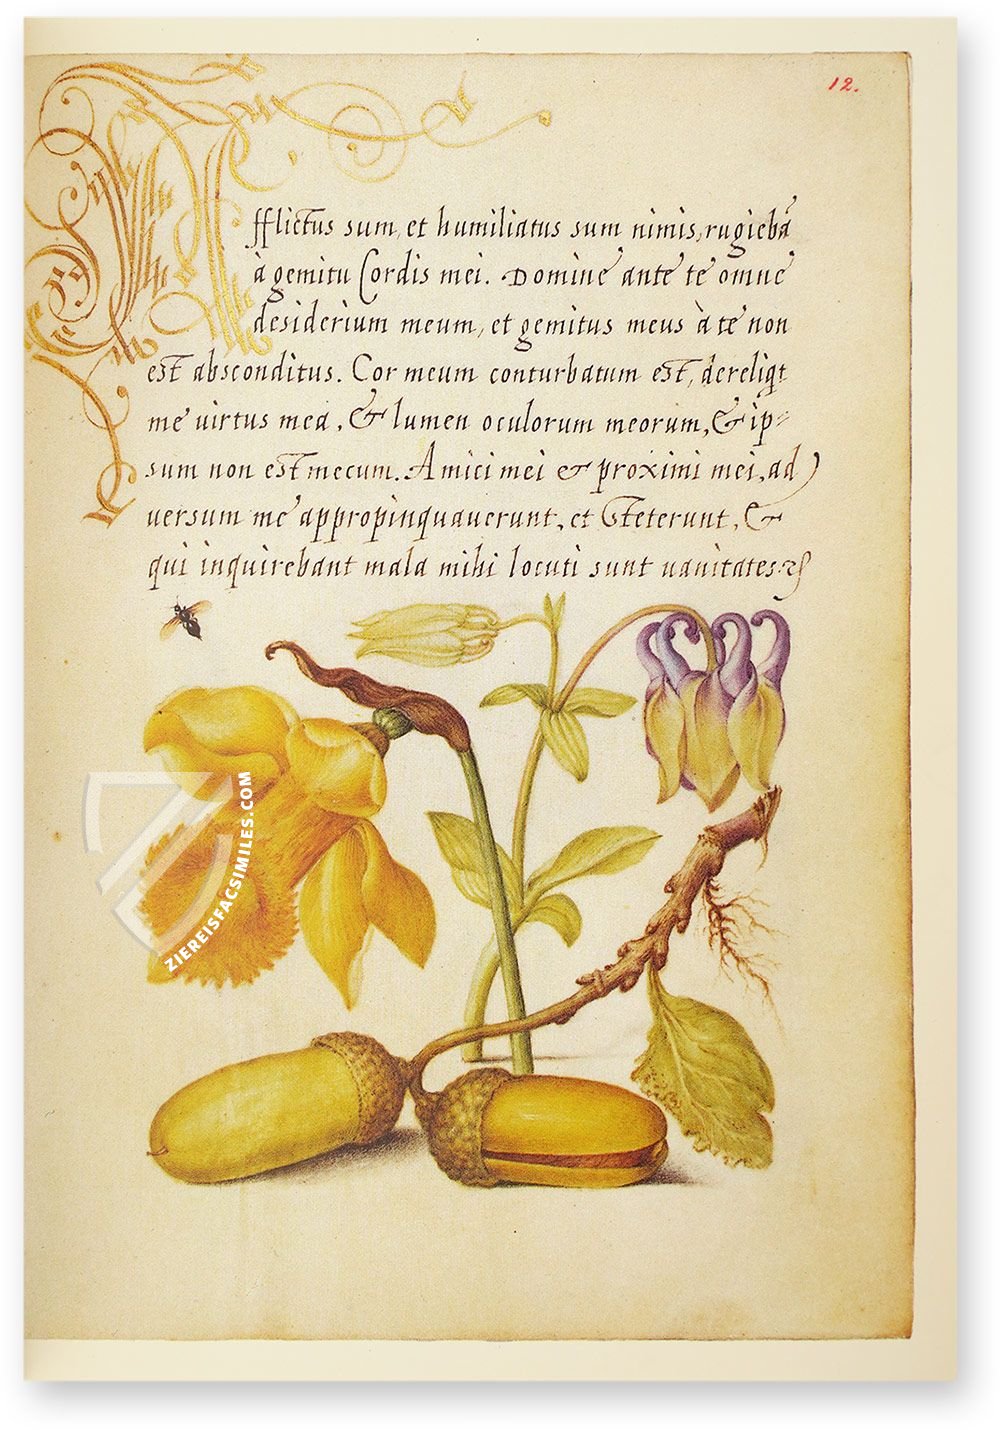 12.
Afflictus sum, et humiliatus sum nimis, rugiebā
à gemitu Cordis mei. Domine ante te omne
desiderium meum, et gemitus meus à te non
est absconditus. Cor meum conturbatum est, dereliqt
me uirtus mea, & lumen oculorum meorum, & ip-
sum non est mecum. Amici mei & proximi mei, ad
uersum me appropinquauerunt, et Steterunt, &
qui inquirebant mala mihi locuti sunt uanitates:
ZIEREISFACSIMILES.COM